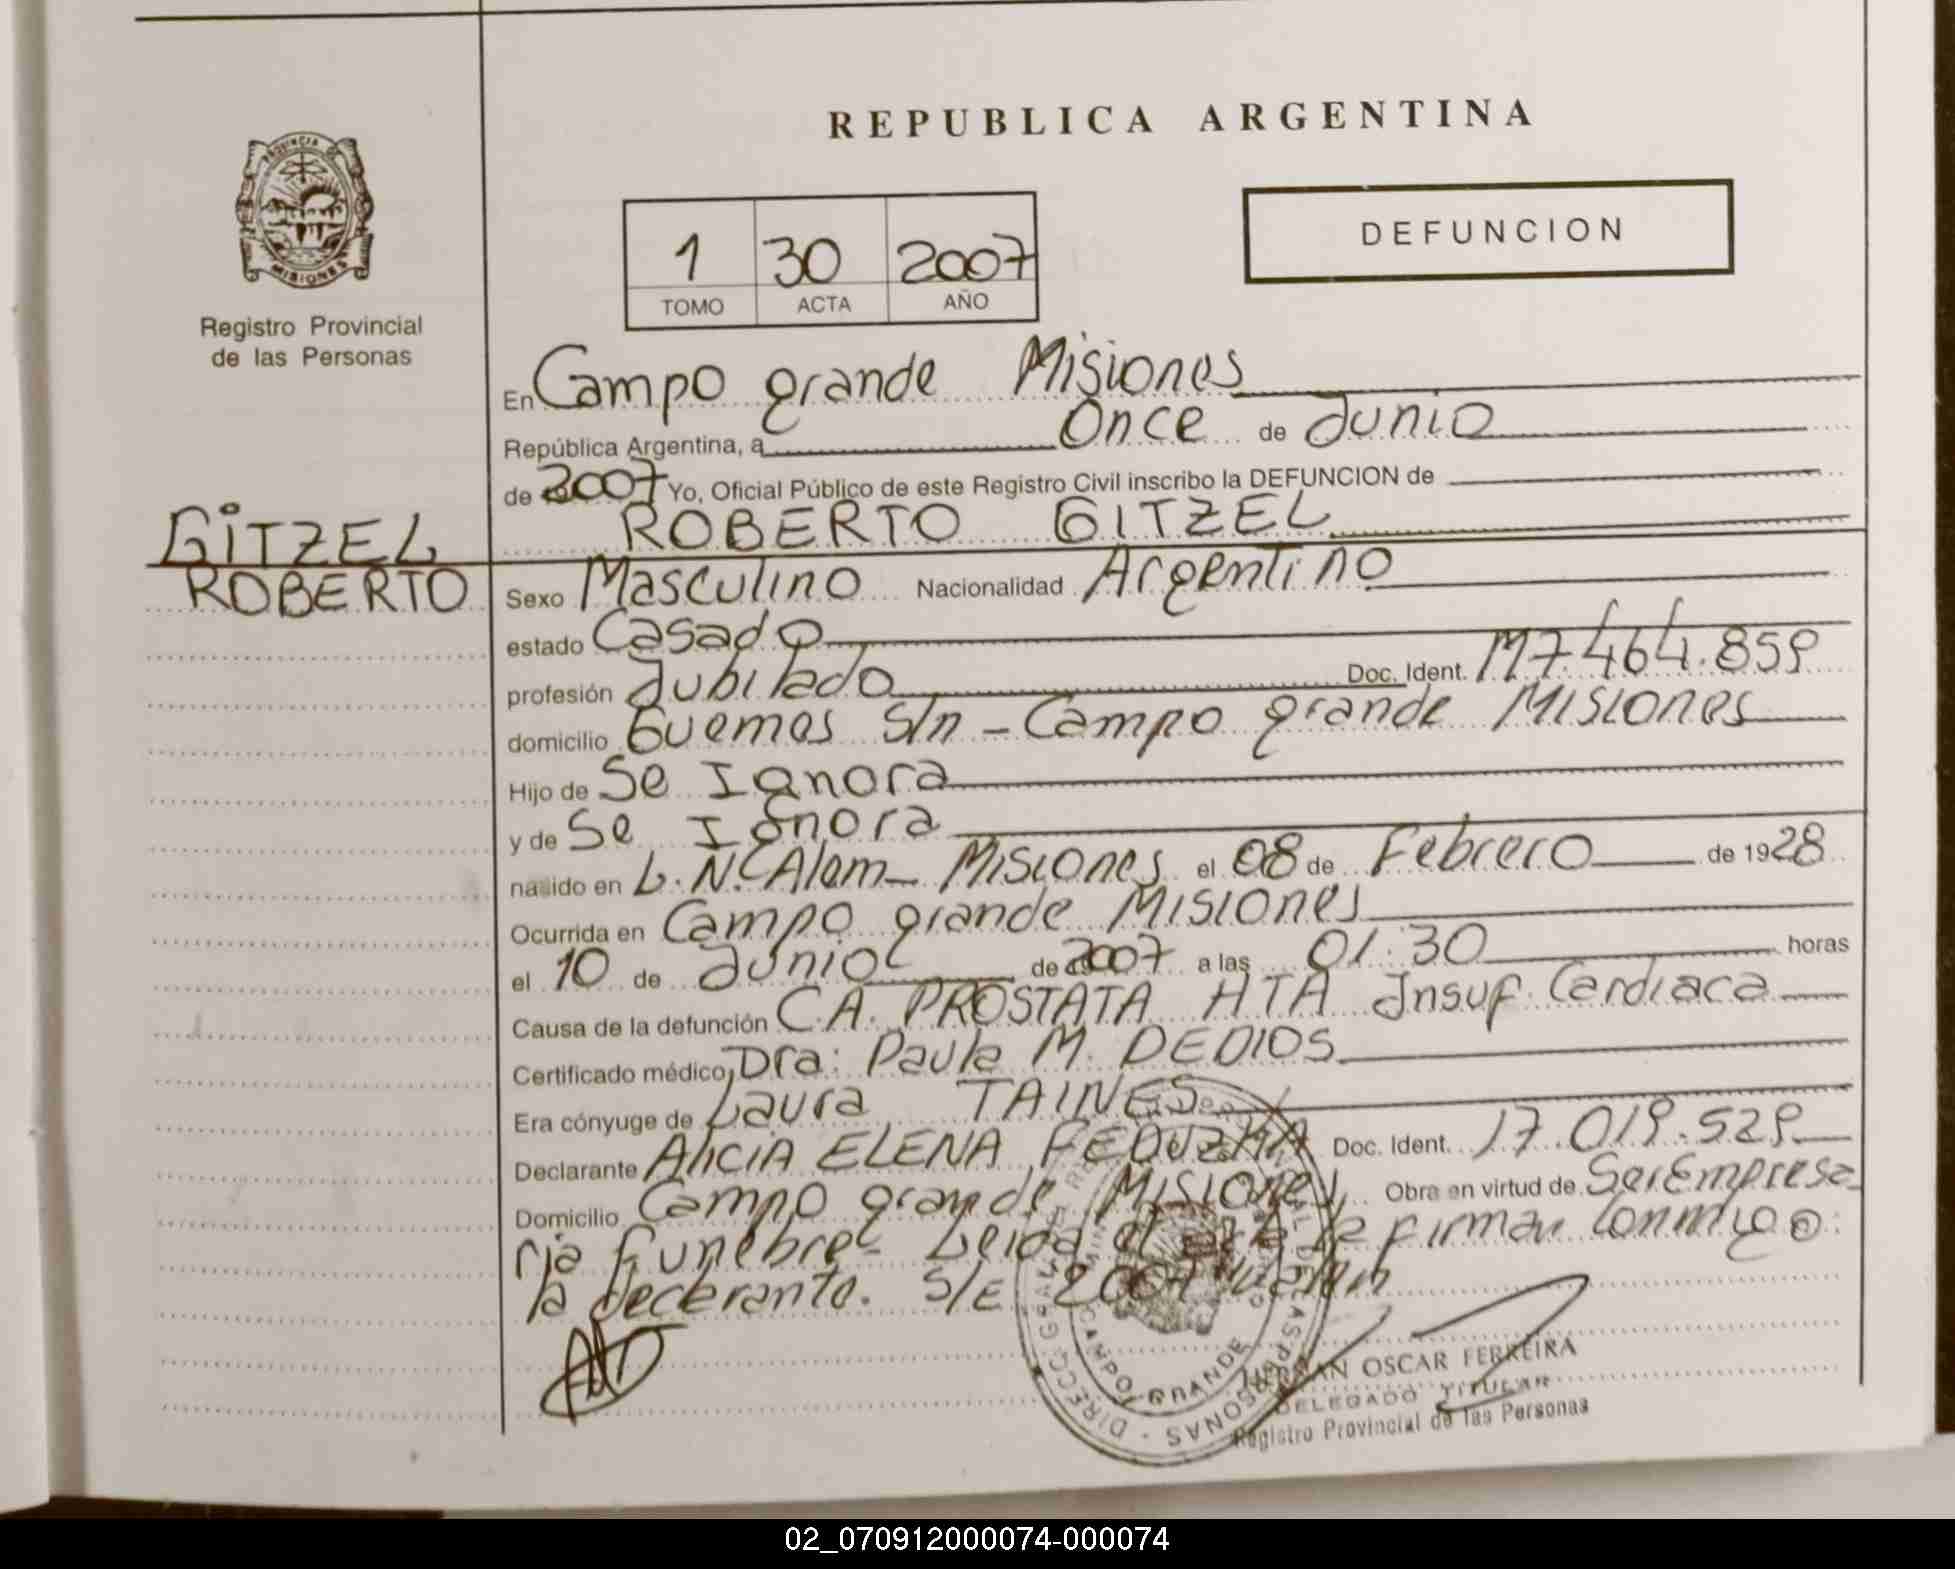 REPUBLICA ARGENTINA
PROVINCIA DE
MISIONES
Registro Provincial
de las Personas
DEFUNCION
1 30 2007
TOMO ACTA AÑO
En Campo grande Misiones
República Argentina, a Once de Junio
de 2007 Yo, Oficial Público de este Registro Civil inscribo la DEFUNCION de
GITZEL
ROBERTO
ROBERTO GITZEL
Sexo Masculino Nacionalidad Argentino
estado Casado
profesión Jubilado Doc. Ident. M7.464.859
domicilio Guemes s/n - Campo grande Misiones
Hijo de Se Ignora
y de Se Ignora
nacido en L.N. Alem - Misiones el 08 de Febrero de 1928
Ocurrida en Campo grande Misiones
el 10 de Junio de 2007 a las 01:30 horas
Causa de la defunción C.A. PROSTATA HTA Insuf. Cardiaca
Certificado médico Dra: Paula M. DEDIOS
Era cónyuge de Laura TAINES
Declarante ALICIA ELENA Doc. Ident. 17.019.529
Domicilio Campo grande Misiones Obra en virtud de Ser Empresa
ria Funebre - Leida el acta la firman conmigo
la declarante. S/E 2007 Valen
CAMPO GRANDE
OSCAR FERREIRA
DELEGADO TITULAR
Registro Provincial de las Personas
02_070912000074-000074